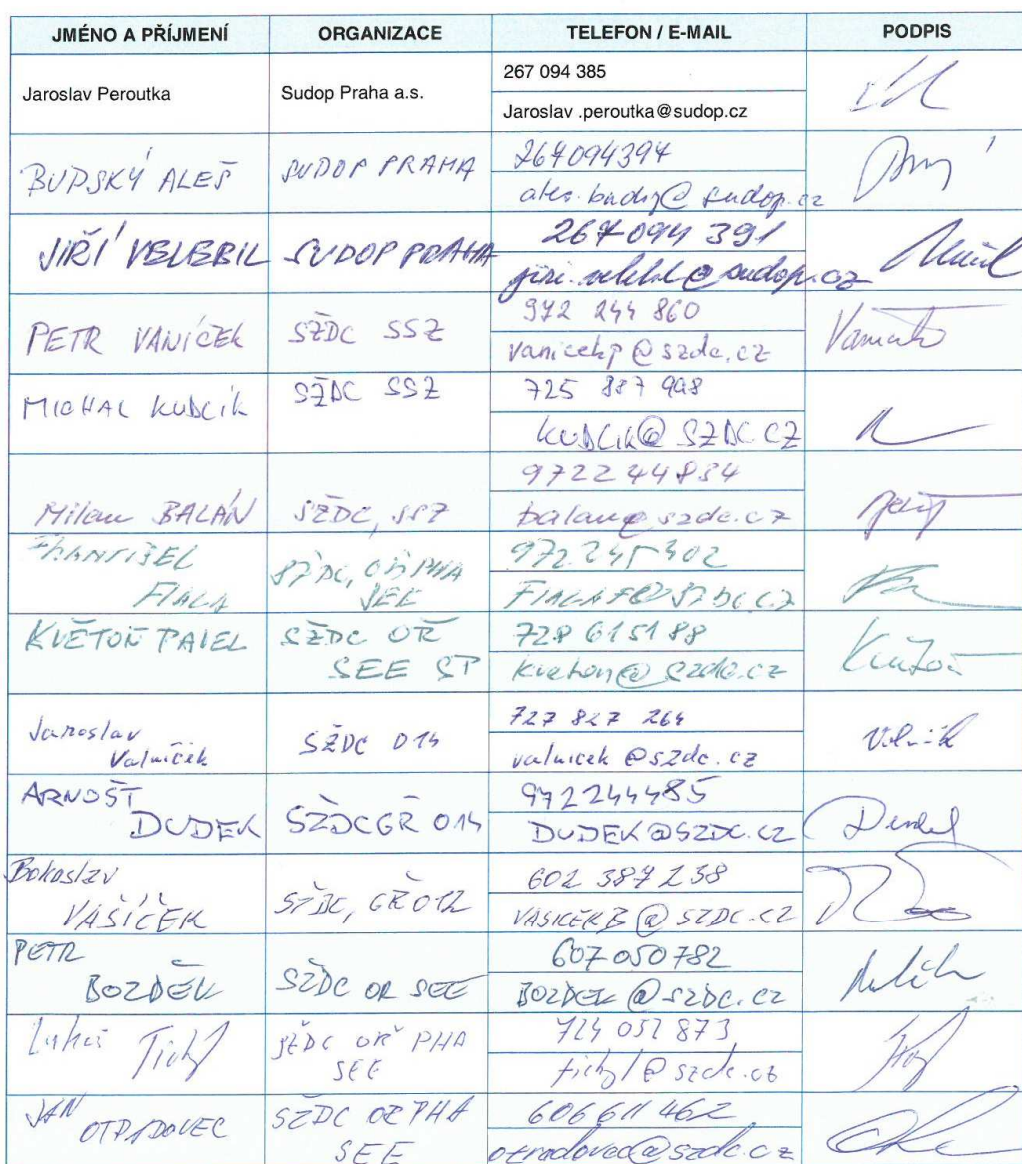 JMÉNO A PŘÍJMENÍ ORGANIZACE TELEFON / E-MAIL PODPIS
Jaroslav Peroutka Sudop Praha a.s. 267 094 385
Jaroslav .peroutka@sudop.cz
BUDSKÝ ALEŠ SUDOP PRAHA 267094394
ales.budsky@sudop.cz
JIŘÍ VELEBIL SUDOP PRAHA 267 094 391
jiri.velebil@sudop.cz
PETR VANÍČEK SŽDC SSZ 972 244 860
vanicekp@szdc.cz
MICHAL KUDCIK SŽDC SSZ 725 887 998
KUDCIK@SZDC.CZ
Milan BALÁN SŽDC, SSZ 972244834
balan@szdc.cz
FRANTIŠEK
FIALA SŽDC, OŘ PHA
SEE 972 245 402
FIALAF@SZDC.CZ
KVĚTOŇ PAVEL SŽDC OŘ
SEE ST 728 615188
kveton@szdc.cz
Jaroslav
Valníček SŽDC O14 727 827 264
valnicek@szdc.cz
ARNOŠT
DUDEK SŽDC GŘ O14 972244485
DUDEK@SZDC.CZ
Bohuslav
VAŠÍČEK SŽDC, GŘ O12 602 387 238
VASICEKB@SZDC.CZ
PETR
BOZDĚK SŽDC OŘ SEE 607050782
BOZDEK@SZDC.CZ
Lukáš Tichý SŽDC OŘ PHA
SEE 724 052 873
tichyl@szdc.cz
JAN
OTRADOVEC SŽDC OŘ PHA
SEE 606 611 462
otradovec@szdc.cz